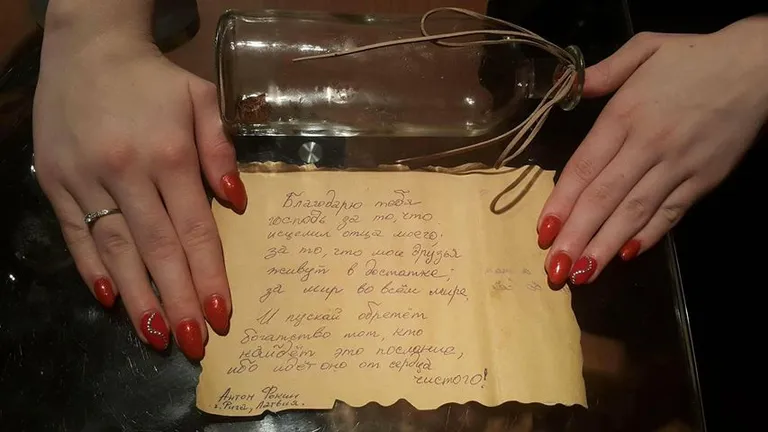 Благодарю тебя
господь за то, что
исцелил отца моего;
за то, что мои друзья
живут в достатке;
за мир во всём мире,
И пускай обретёт
богатство тот, кто
найдёт это послание,
ибо идёт оно от сердца
чистого!
Антон Фокин
г. Рига, Латвия.